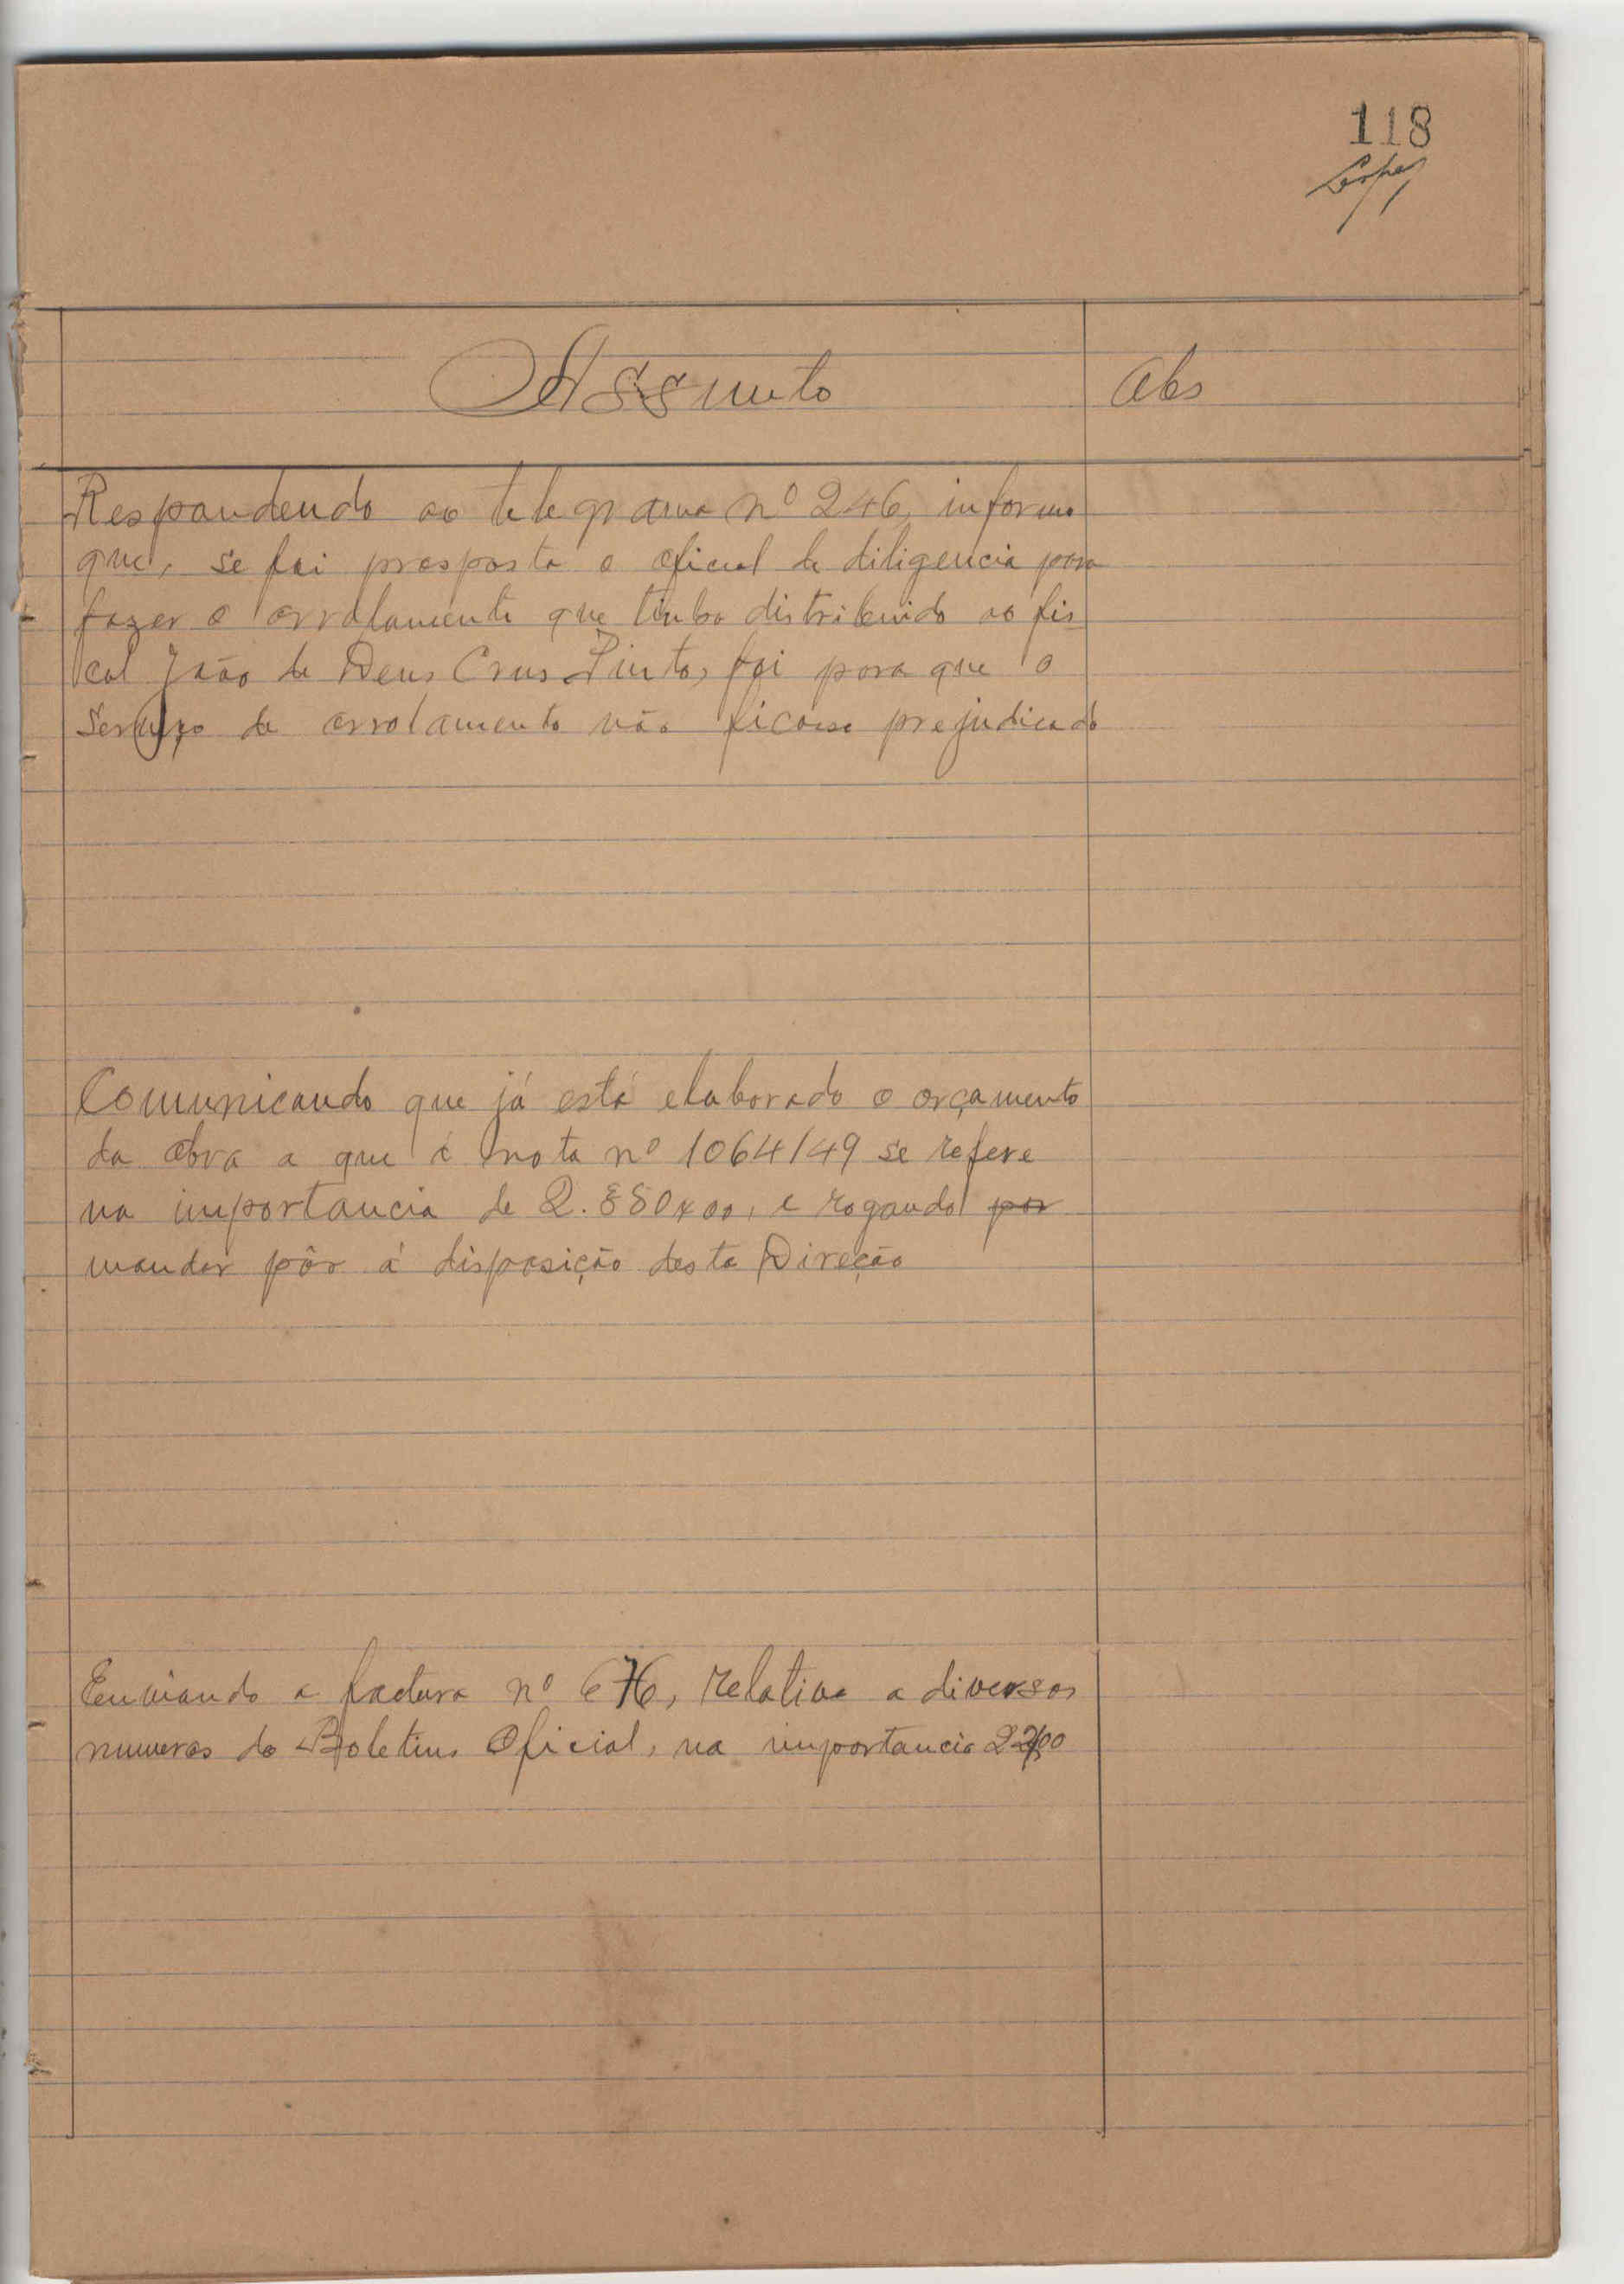 118
Lopes
Assunto
Obs
Respondendo ao telegrama nº 246, informo
que, se foi prosposto o oficial de diligencia para
fazer o arrolamento que tinha distribuido ao fis
cal João de Deus Crus Pinto, foi para que o
serviço de arrolamento não ficasse prejudicado
Comunicando que já está elaborado o orçamento
da obra a que é nota nº 1064/49 se refere
na importancia de 2.880$00, e rogando por
mandar pôr á disposição desta Direção
Enviando a factura nº 676, relativa a diversos
numeros do Boletim Oficial, na importancia